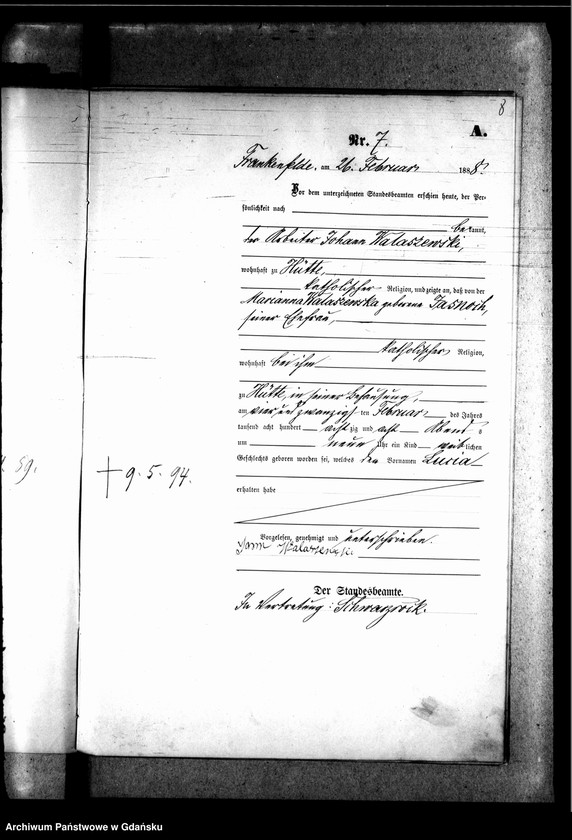 8
A.
Nr. 7.
Frankenfelde, am 26. Februar 1888.
Vor dem unterzeichneten Standesbeamten erschien heute, der Per-
sönlichkeit nach
bekannt,
der Arbeiter Johann Walaszewski,
wohnhaft zu Hütte,
katholischer Religion, und zeigte an, daß von der
Marianna Walaszewska geborene Jasnoch,
seiner Ehefrau,
katholischer Religion,
wohnhaft bei ihm
zu Hütte, in seiner Behausung,
am vierundzwanzigsten Februar des Jahres
tausend acht hundert achtzig und acht Abends
um neun Uhr ein Kind weiblichen
Geschlechts geboren worden sei, welches den Vornamen Lucia
erhalten habe
59.
† 9. 5. 94.
Vorgelesen, genehmigt und unterschrieben.
Walaszewski
Der Standesbeamte.
In Vertretung:
Archiwum Państwowe w Gdańsku